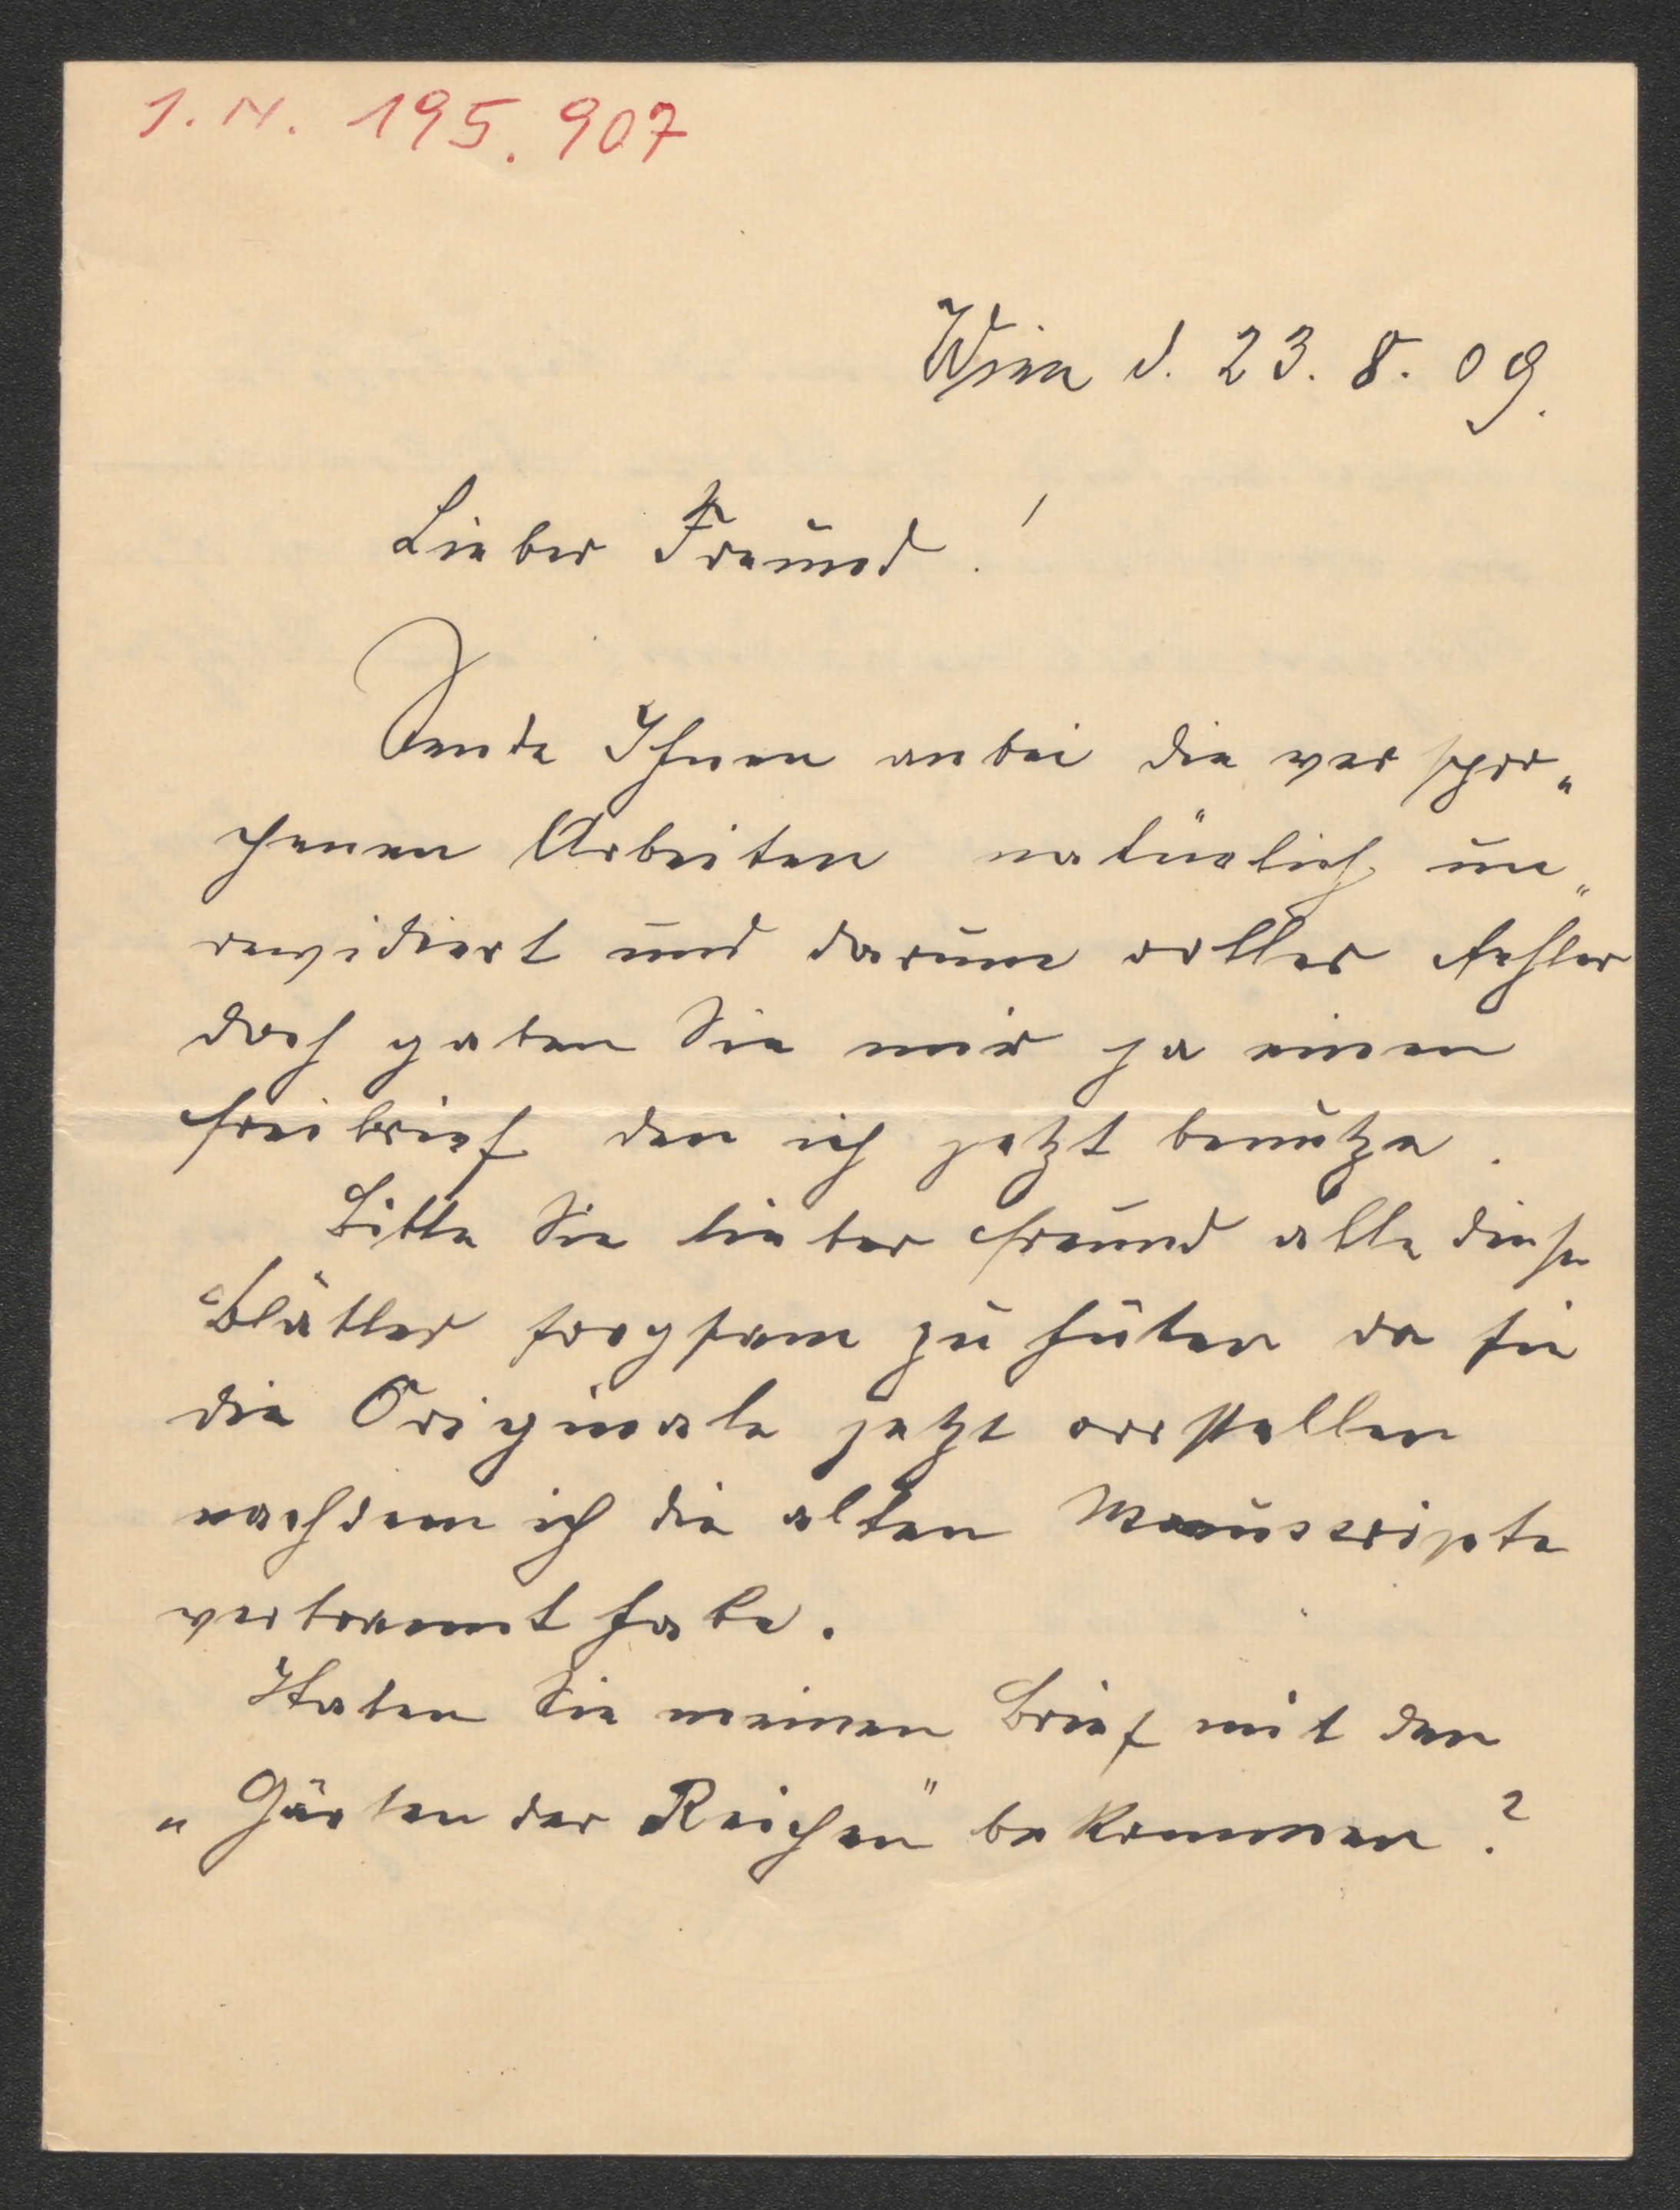 I. N. 195.907
Wien d. 23. 8. 09.
Lieber Freund!
Sende Ihnen anbei die verspro„
chenen Arbeiten natürlich un„
revidiert und darum voller Fehler
doch gaben Sie mir ja einen
Freibrief den ich jetzt benütze.
Bitte Sie lieber Freund alle diese
Blätter sorgsam zu hüten da sie
die Originale jetzt vorstellen
nachdem ich die alten Manuscripte
verbrannt habe.
Haben Sie meinen Brief mit den
„Gärten der Reichen" bekommen?